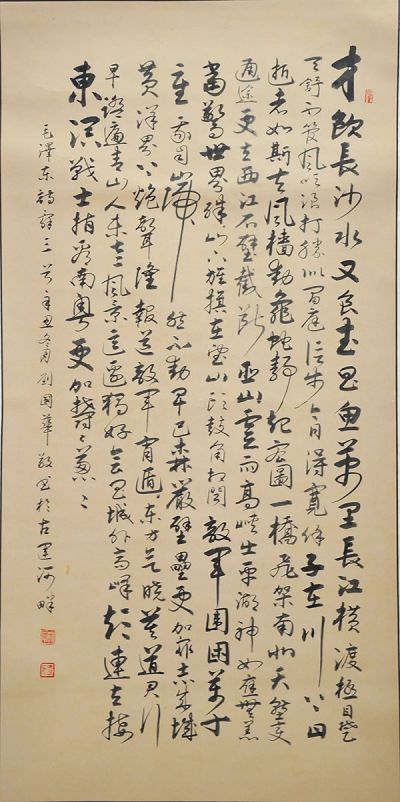 才飲長沙水又食武昌魚萬里長江橫渡極目楚
天舒不管風吹浪打勝似閑庭信步今日得寬餘子在川上曰
逝者如斯夫風檣動龜蛇靜起宏圖一橋飛架南北天塹變
通途更立西江石壁截斷巫山雲雨高峽出平湖神女應無恙
當驚世界殊山下旌旗在望山頭鼓角相聞敵軍圍困萬千
重我自巋然不動早已森嚴壁壘更加眾志成城
黃洋界上炮聲隆報道敵軍宵遁東方欲曉莫道君行
早踏遍青山人未老風景這邊獨好會昌城外高峰顛連直接
東溟戰士指看南粵更加鬱〻蔥〻
毛澤東詩詞三首辛丑冬月劉國華敬書於古運河畔